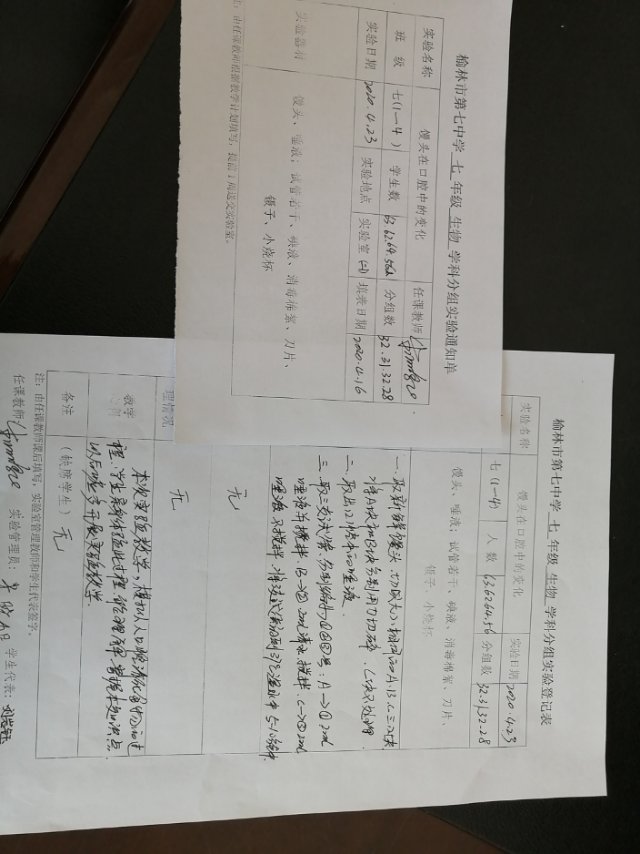 榆林市第七中学 七 年级 生物 学科分组实验通知单
实验名称 馒头在口腔中的变化 任课教师
班 级 七(1—4) 学生数 63.62.64.56 分组数 32.31.32.28
实验日期 2020.4.23 实验地点 实验室(4) 填表日期 2020.4.16
实验器材 馒头、唾液；试管若干、碘液、消毒棉絮、刀片、
镊子、小烧杯
注：由任课教师根据教学计划填写，提前1周送交实验室。
榆林市第七中学 七 年级 生物 学科分组实验登记表
实验名称 馒头在口腔中的变化 实验日期 2020.4.23
七(1—4) 人 数 63.62.64.56 分组数 32.31.32.28
馒头、唾液；试管若干、碘液、消毒棉絮、刀片、
镊子、小烧杯
一.取新鲜馒头.切成大小相同的A.B.C三块
将A块和B块分别用刀切碎.C块不处理
二.取出口腔中的唾液.
三.取三支试管.分别编为①②③号：A→① 2ml
唾液并搅拌.B→② 2ml清水搅拌.C→③ 2ml
唾液不搅拌.将试管放到37℃温水中5-10分钟
无
理情况 无
教学 本次实验教学，模拟人口腔消化食物的过
程.学生亲身体验此过程.能理解掌握本知识点.
以后可多开展实验教学.
备注 (缺席学生) 无
注：由任课教师课后填写，实验室管理教师和学生代表签字。
任课教师： 实验管理员： 学生代表：